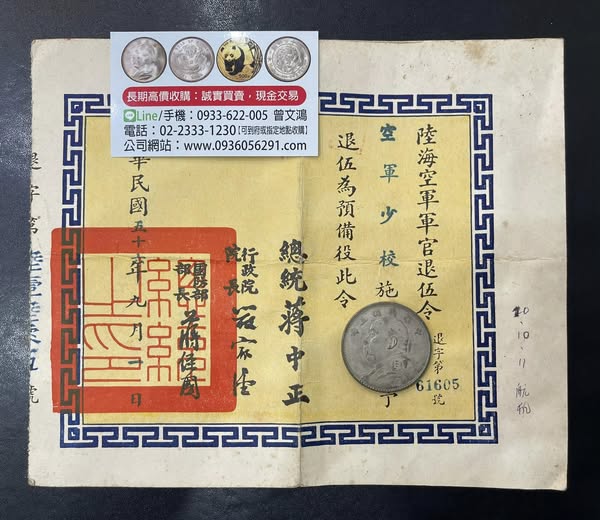 長期高價收購：誠實買賣，現金交易
Line/手機：0933-622-005 曾文鴻
電話：02-2333-1230【可到府或指定地點收購】
公司網站：www.0936056291.com
陸海空軍軍官退伍令
退字第
61605
號
空軍少校施
予
退伍為預備役此令
總統 蔣中正
行政院
院長
國防部
部長 蔣經國
華民國五十六年九月一日
退字第
號
20.10.11